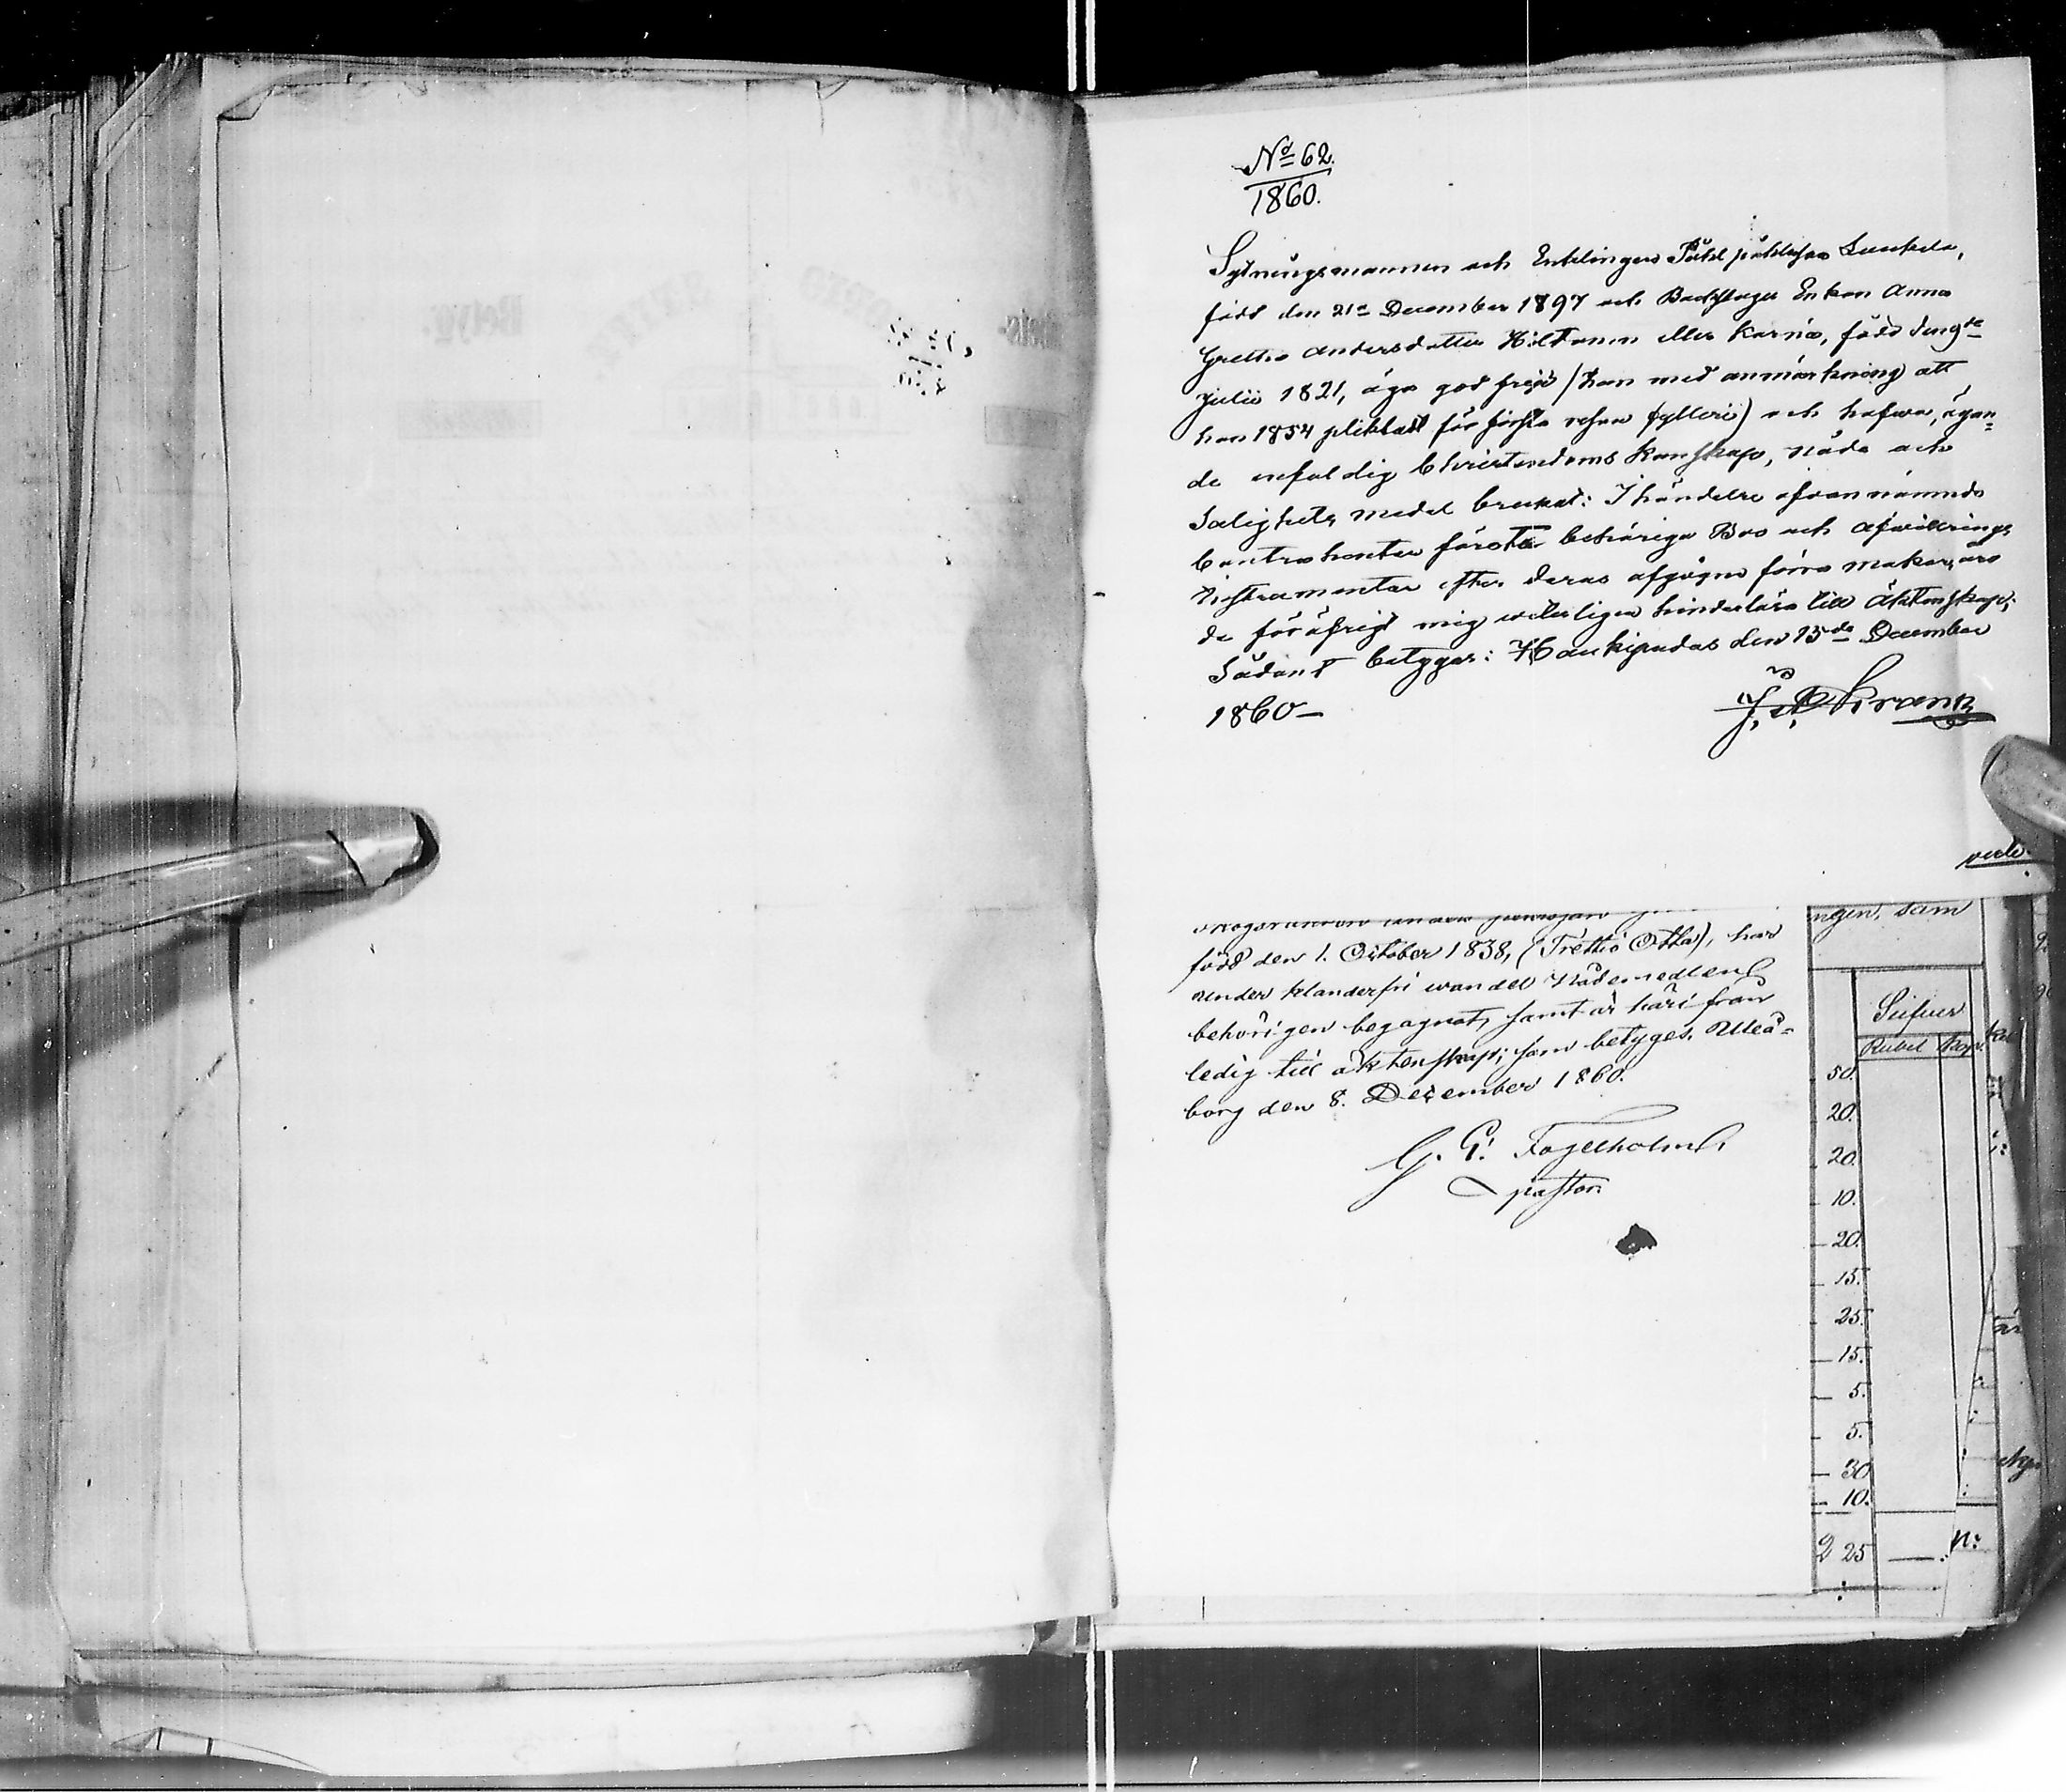 No 62.
1860.
Sytningsmannen och Enklingen Påhl Påhlsson Lunkela,
född den 21e December 1797 och Backstuge Enkan Anna
Gretha Andersdotter Hiltunen eller Karna, född den 9de
Julii 1821, äga god frejd (han med anmärkning att
han 1854 pliktat för första resan fylleri) och hafva, ägan=
de enfaldig Christendoms kunskap, nåde och
Salighets medel brukat: I händelse ofvannämnde
Contrahenter förete behöriga Boo och afvittrings
Instrumenter efter deras afgågne förra makar, äro
de föröfrigt mig veterligen hinderlösa till Äktenskap;
Sådant betygas: Haukipudas den 15de December
1860—
J. A. Krank
verte.
född den 1. October 1838, (Trettio Otta), har
under klanderfri wandel Nådemedlen
behörigen begagnat, samt är härifrån
ledig till äktenskap; som betyges. Uleå=
borg den 8. December 1860.
G. G. Fogelholm
pastor.
ngen, sam
Silfver
Rubel Kop.
50.
20.
20.
10.
20.
15.
25.
15.
5.
5.
30
10.
2 25 —